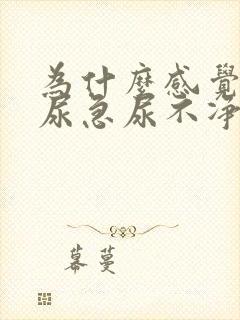 為什麼感覺
尿急尿不淨
幕蔓